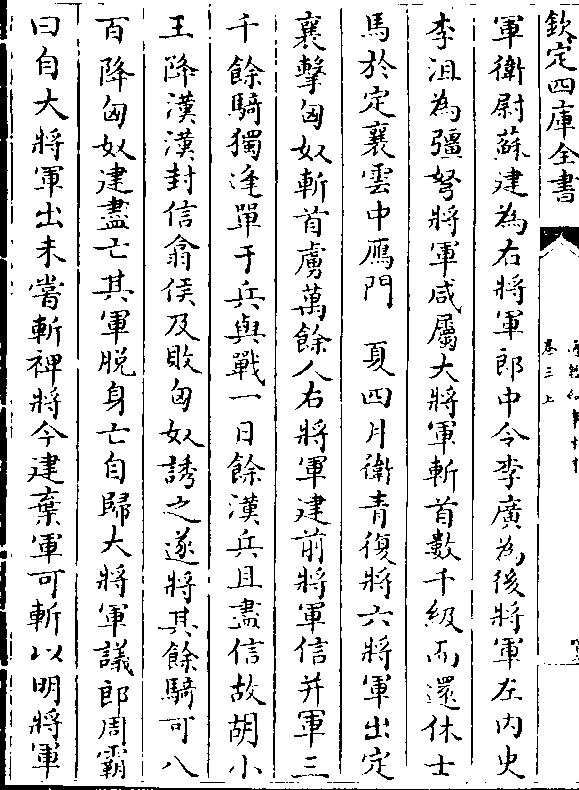 欽定四庫全書
卷三上
軍衛尉蘇建為右將軍郎中令李廣為後將軍左内史
李沮為彊弩將軍咸屬大將軍斬首數千級而還休士
馬於定襄雲中雁門　夏四月衛青復將六將軍出定
襄擊匈奴斬首虜萬餘人右將軍建前將軍信并軍三
千餘騎獨逢單于兵與戰一日餘漢兵且盡信故胡小
王降漢漢封信翕侯及敗匈奴誘之遂將其餘騎可八
百降匈奴建盡亡其軍脱身亡自歸大將軍議郎周霸
曰自大將軍出未嘗斬裨將今建棄軍可斬以明將軍